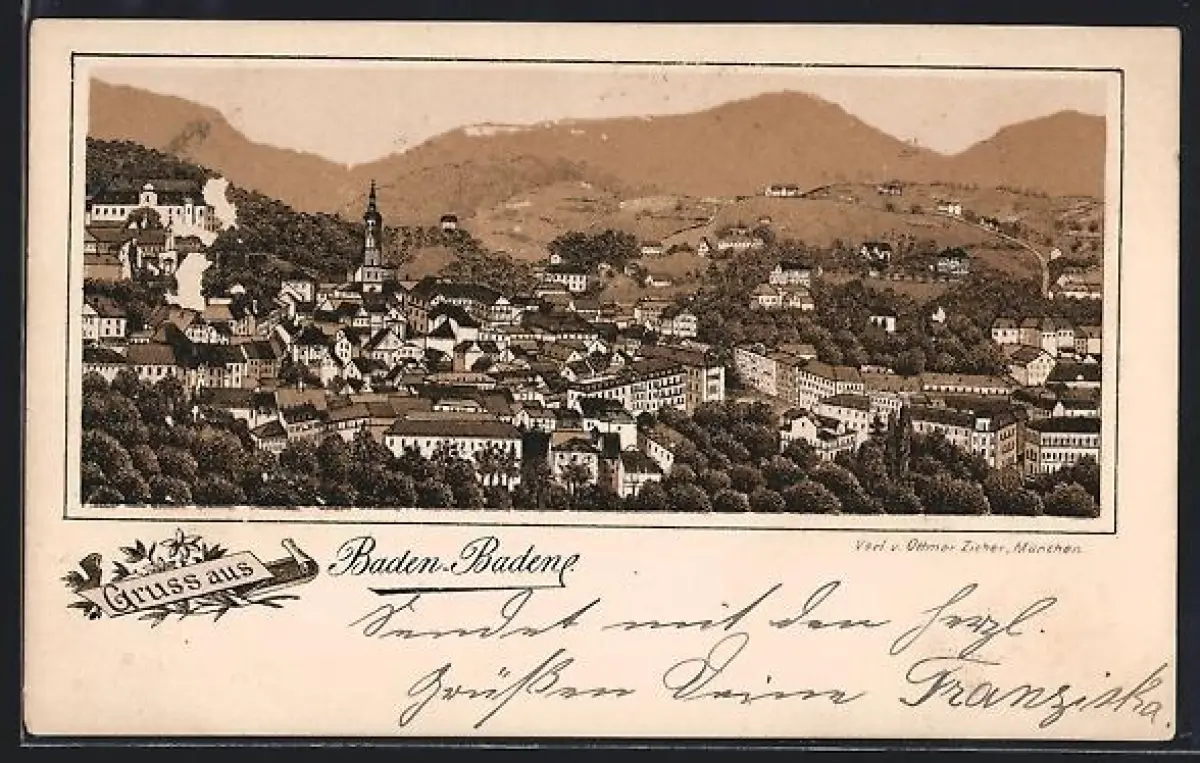 Verl v. Ottmar Zieher, München
Gruss aus
Baden-Baden
Sendet mit den herzl.
Grüßen Deine Franziska.